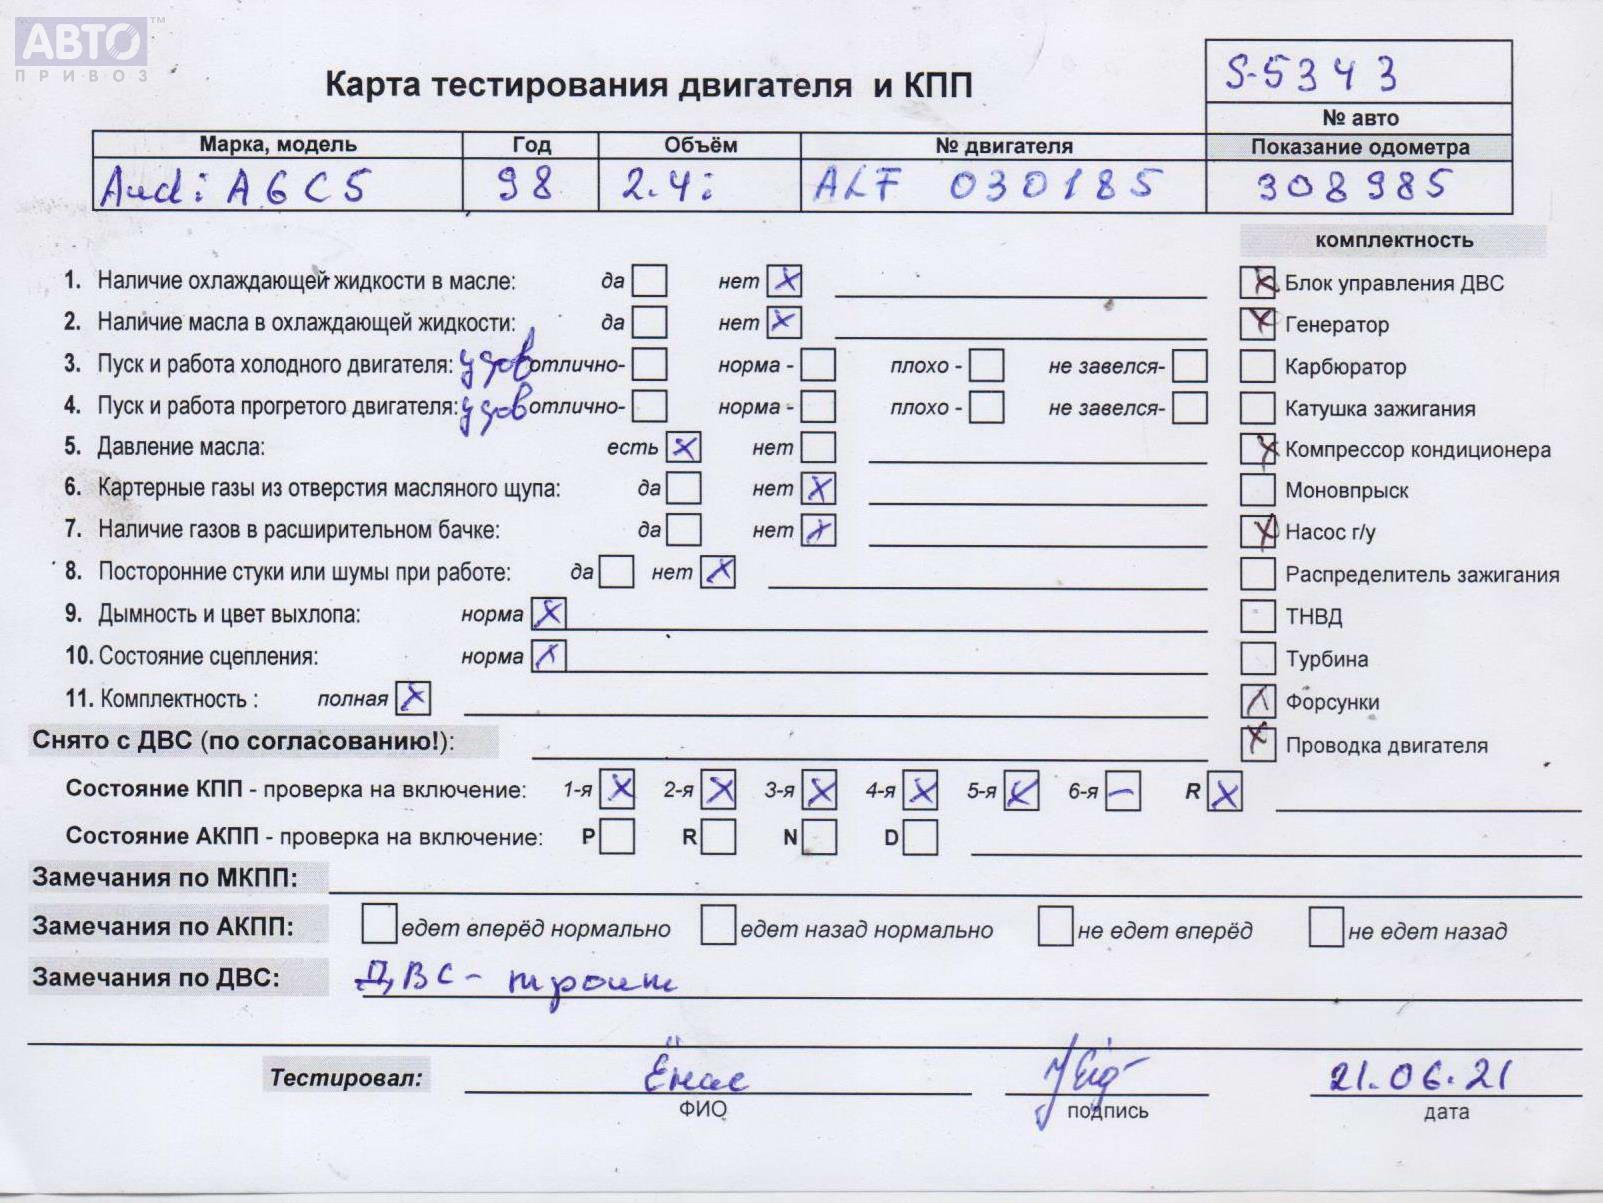 АВТО™
ПРИВОЗ
Карта тестирования двигателя и КПП
S-5343
№ авто
Марка, модель Год Объём № двигателя Показание одометра
Audi A6 C5 98 2.4i ALF 030185 308985
комплектность
1. Наличие охлаждающей жидкости в масле: да нет X Блок управления ДВС X
2. Наличие масла в охлаждающей жидкости: да нет X Генератор X
3. Пуск и работа холодного двигателя: удов отлично- норма - плохо - не завелся- Карбюратор
4. Пуск и работа прогретого двигателя: удов отлично- норма - плохо - не завелся- Катушка зажигания
5. Давление масла: есть X нет Компрессор кондиционера X
6. Картерные газы из отверстия масляного щупа: да нет X Моновпрыск
7. Наличие газов в расширительном бачке: да нет X Насос г/у X
8. Посторонние стуки или шумы при работе: да нет X Распределитель зажигания
9. Дымность и цвет выхлопа: норма X ТНВД
10. Состояние сцепления: норма X Турбина
11. Комплектность : полная X Форсунки X
Снято с ДВС (по согласованию!): Проводка двигателя X
Состояние КПП - проверка на включение: 1-я X 2-я X 3-я X 4-я X 5-я X 6-я – R X
Состояние АКПП - проверка на включение: P R N D
Замечания по МКПП:
Замечания по АКПП: едет вперёд нормально едет назад нормально не едет вперёд не едет назад
Замечания по ДВС: ДВС - троит
Тестировал: 21.06.21
ФИО подпись дата